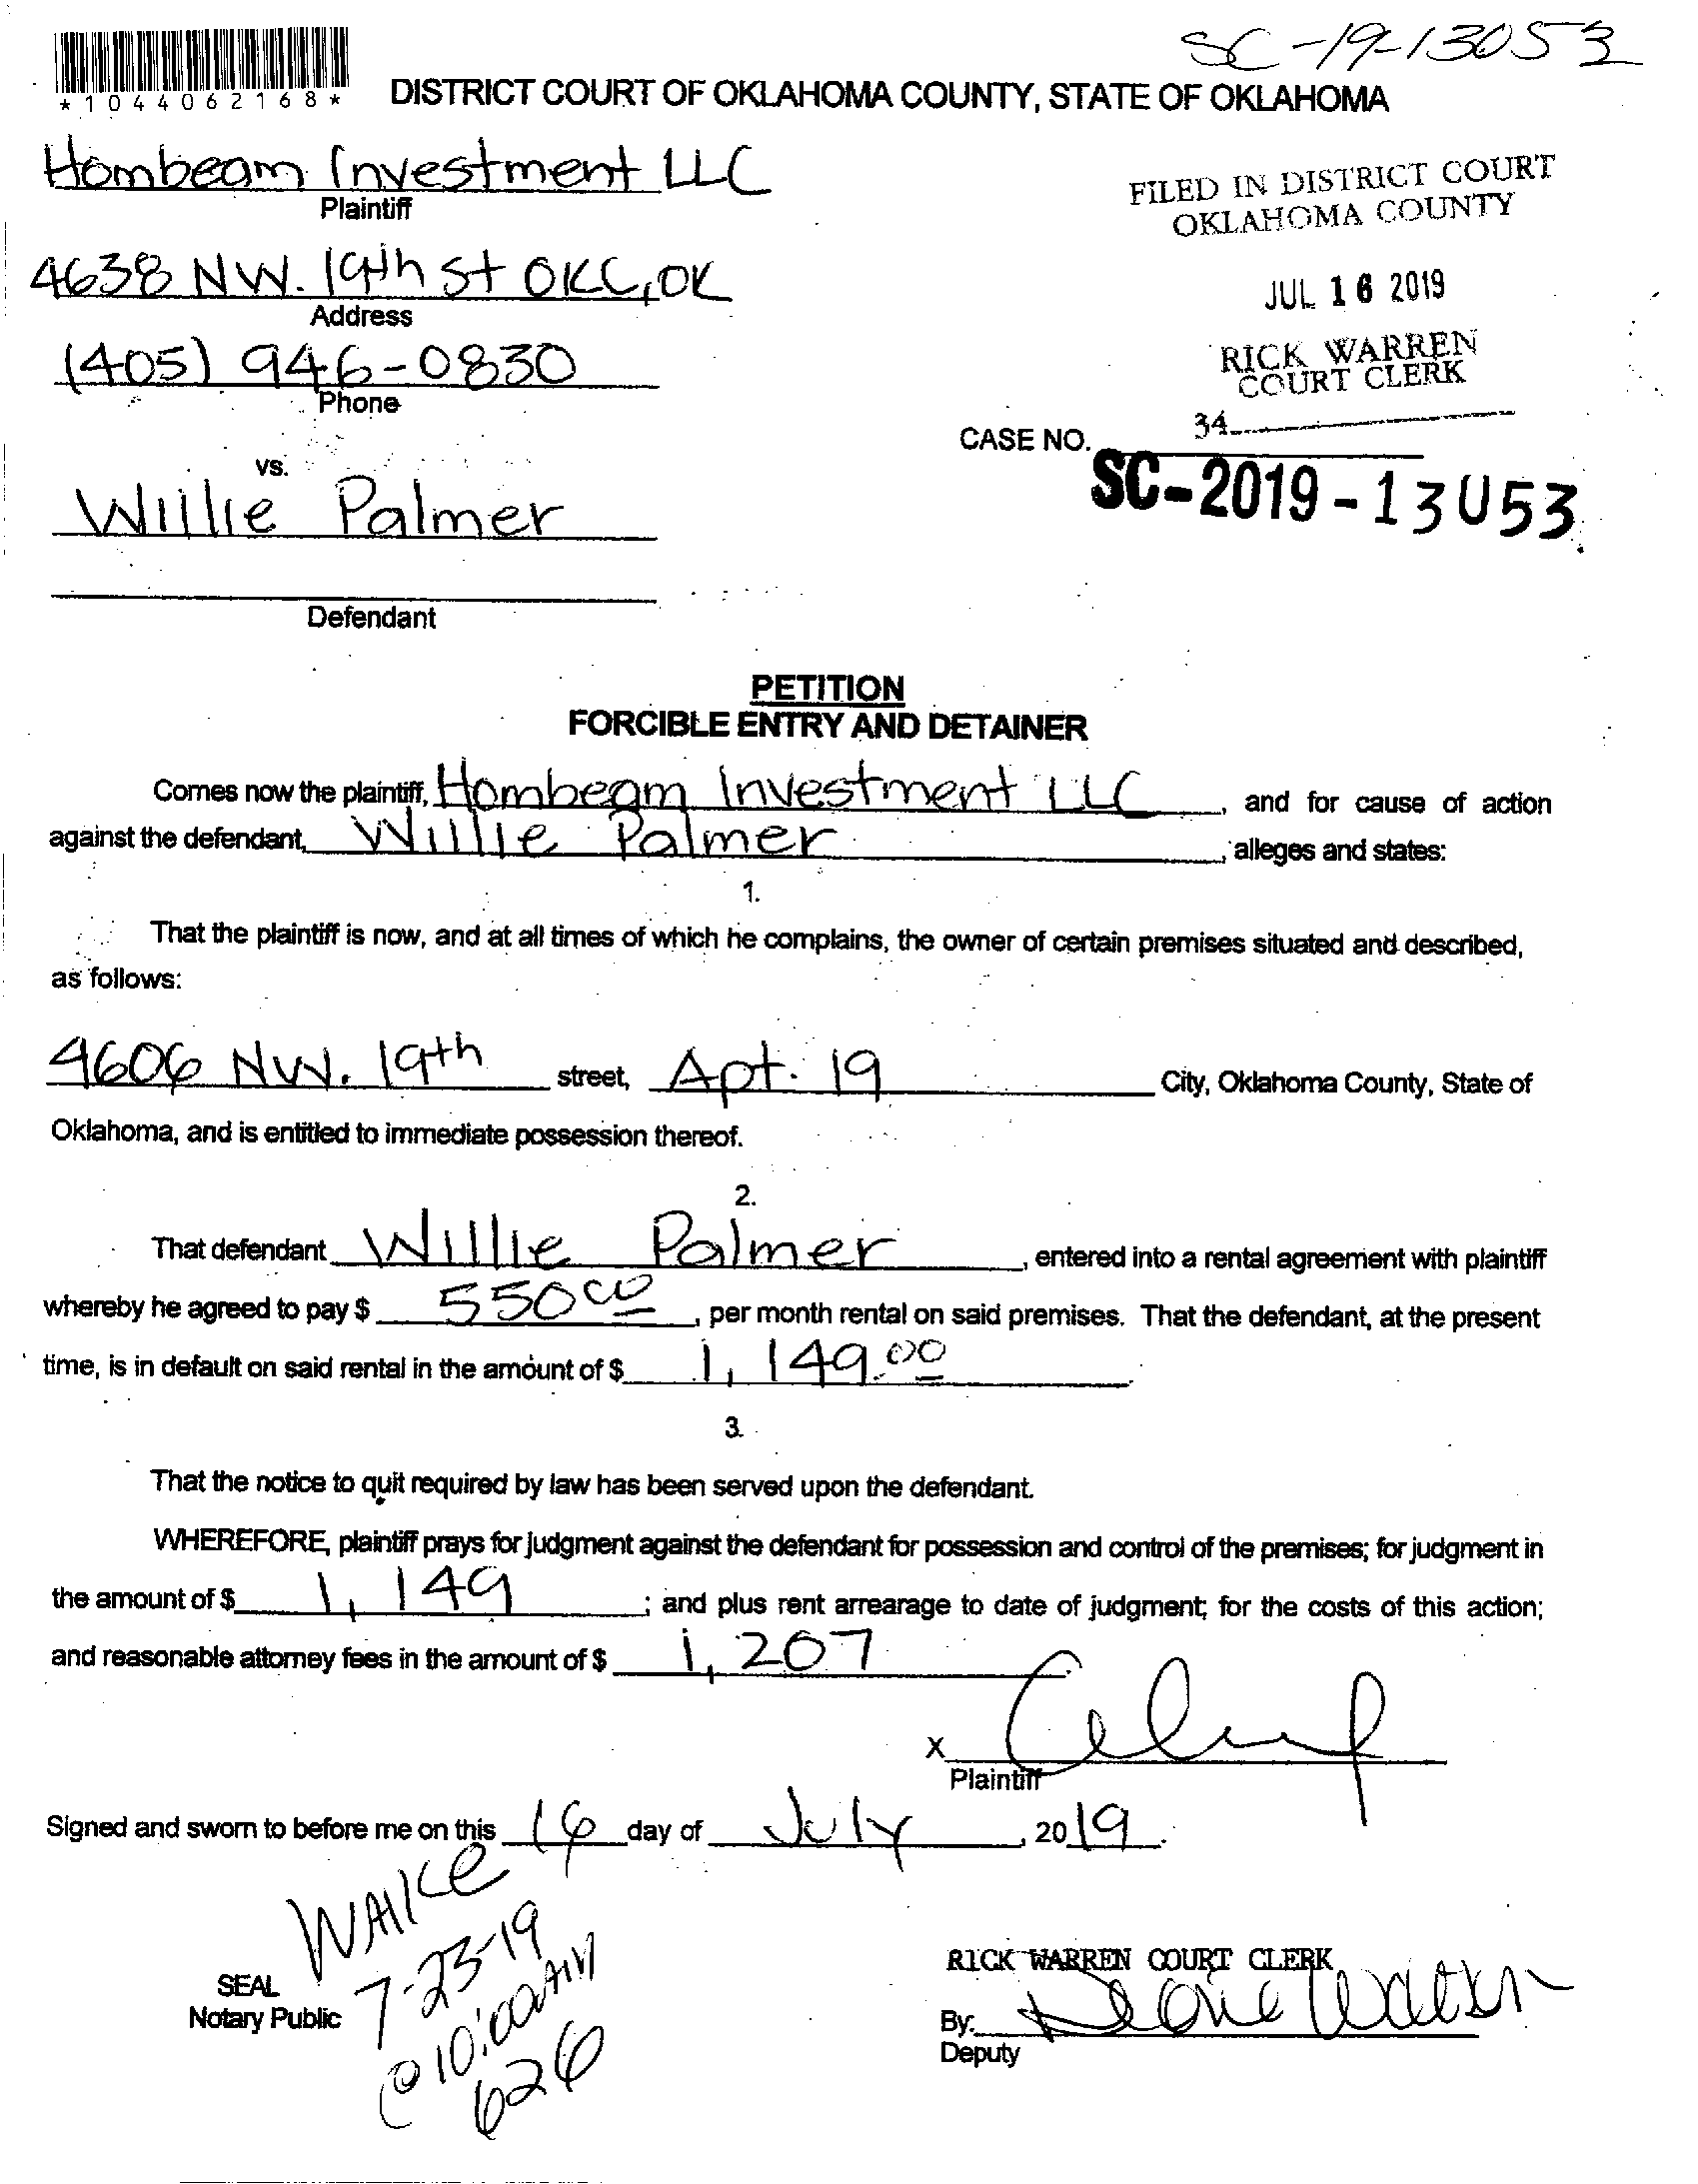 SC-19-13053
*1044062168*
DISTRICT COURT OF OKLAHOMA COUNTY, STATE OF OKLAHOMA
Hombeam Investment LLC
Plaintiff
FILED IN DISTRICT COURT
OKLAHOMA COUNTY
4638 NW. 19th St OKC, OK
Address
JUL 16 2019
(405) 946-0830
Phone
RICK WARREN
COURT CLERK
34
CASE NO.
SC-2019-13053
vs.
Willie Palmer
Defendant
PETITION
FORCIBLE ENTRY AND DETAINER
Comes now the plaintiff, Hombeam Investment LLC, and for cause of action
against the defendant, Willie Palmer, alleges and states:
1.
That the plaintiff is now, and at all times of which he complains, the owner of certain premises situated and described,
as follows:
4606 NW. 19th street, Apt. 19 City, Oklahoma County, State of
Oklahoma, and is entitled to immediate possession thereof.
2.
That defendant Willie Palmer, entered into a rental agreement with plaintiff
whereby he agreed to pay $ 550.00, per month rental on said premises. That the defendant, at the present
time, is in default on said rental in the amount of $ 1,149.00.
3.
That the notice to quit required by law has been served upon the defendant.
WHEREFORE, plaintiff prays for judgment against the defendant for possession and control of the premises; for judgment in
the amount of $ 1,149; and plus rent arrearage to date of judgment; for the costs of this action;
and reasonable attorney fees in the amount of $ 1,207
X
Plaintiff
Signed and sworn to before me on this 16 day of July, 2019.
7-23-19
@ 10:00AM
626
SEAL
Notary Public
RICK WARREN COURT CLERK
By:
Deputy